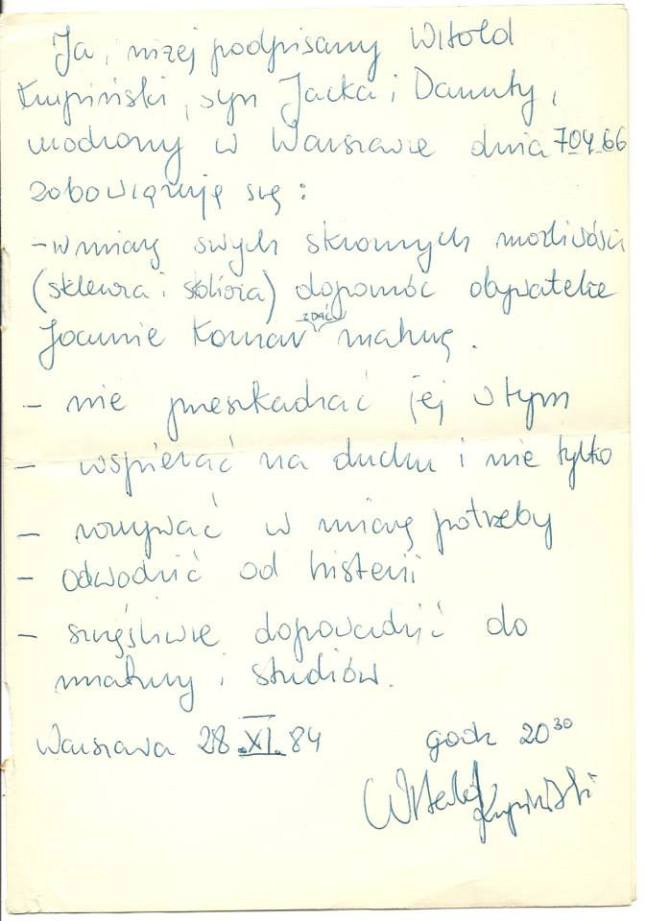 Ja, niżej podpisany Witold
Krupiński, syn Jacka i Danuty,
urodzony w Warszawie dnia 7.04.66
zobowiązuję się:
- w miarę swych skromnych możliwości
(skleroza i skolioza) dopomóc obywatelce
Joannie zdać maturę.
- nie przeszkadzać jej w tym
- wspierać na duchu i nie tylko
- w miarę potrzeby
- odwodzić od histerii
- szczęśliwie doprowadzić do
matury i studiów.
Warszawa 28.XI.84 godz 20³⁰
Witold Krupiński